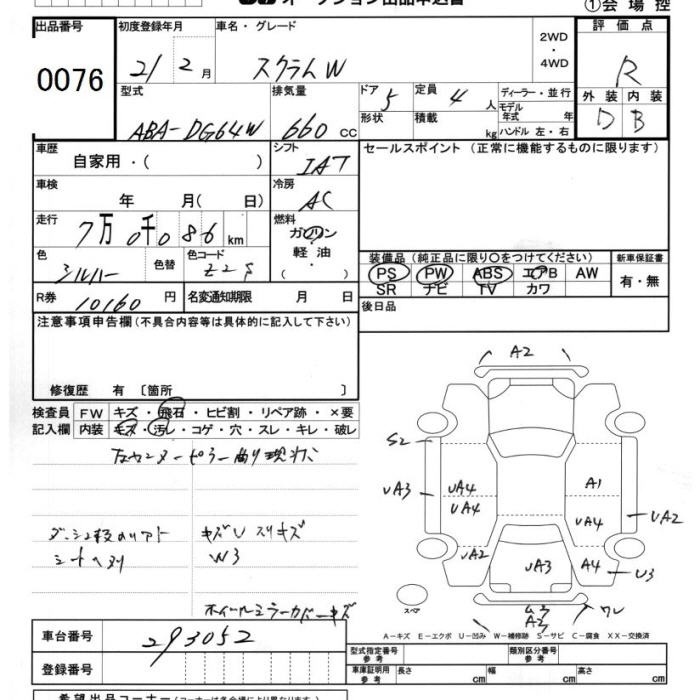 オークション出品申込書
①会場控
出品番号 初度登録年月 車名・グレード 評価点
0076 21 2月 スクラムW 2WD・4WD R
型式 排気量 ドア 定員 ディーラー・並行 外装 内装
ABA-DG64W 660 CC 5 4人 モデル年式 年 D B
形状 積載 kg ハンドル 左・右
車歴 シフト セールスポイント (正常に機能するものに限ります)
自家用・( ) IAT
車検 冷房
年 月( 日) AC
走行 燃料
7万0千086km ガソリン
色 色替 色コード 軽油・
シルバー Z2S ( )
装備品 (純正品に限り○をつけてください) 新車保証書
PS PW ABS エアB AW 有・無
SR ナビ TV カワ
R券 10160円 名変通知期限 月 日
後日品
注意事項申告欄(不具合内容等は具体的に記入して下さい)
修復歴 有〔箇所 〕
検査員 FW キズ・飛石・ヒビ割・リペア跡・×要
記入欄 内装 キズ・汚レ・コゲ・穴・スレ・キレ・破レ
シート ヘタリ キズU スリキズ
W3
ホイールミラーカバーキズ
A2
S2
UA3 UA4 A1
UA4 UA4 UA2
UA2 UA3 A4 U3
スペア
A3
A-キズ E-エクボ U-凹み W-補修跡 S-サビ C-腐食 XX-交換済
車台番号 293052
登録番号
型式指定番号 参考 類別区分番号 参考
車庫証明用 参考 長さ cm 幅 cm 高さ cm
希望出品コーナー